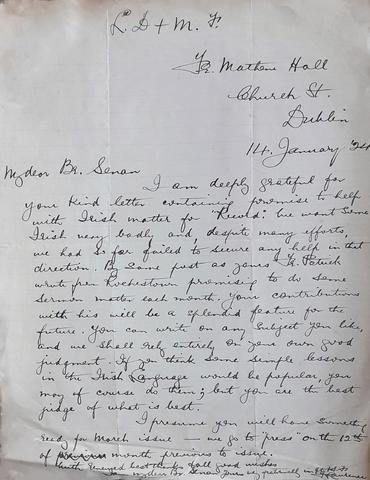 L. D + M. F.
Fr. Mathew Hall
Church St.
Dublin
14. January '24
My dear Br. Senan
I am deeply grateful for
your kind letter containing promise to help
with Irish matter for Record: we want some
Irish very badly and, despite many efforts,
we had so far failed to secure any help in that
direction. By same post as yours Fr. Patrick
wrote from Rochestown promising to do some
Sermon matter each month. Your contributions
with his will be a splendid feature for the
future. You can write on any subject you like,
and we shall rely entirely on your own good
judgment. If you think some simple lessons
in the Irish Language would be popular, you
may of course do them; but you are the best
judge of what is best.
I presume you will have something
ready for March issue — we go to 'press' on the 12th
of month previous to issue.
With renewed best thanks & all good wishes
my dear Br Senan yours very fraternally in